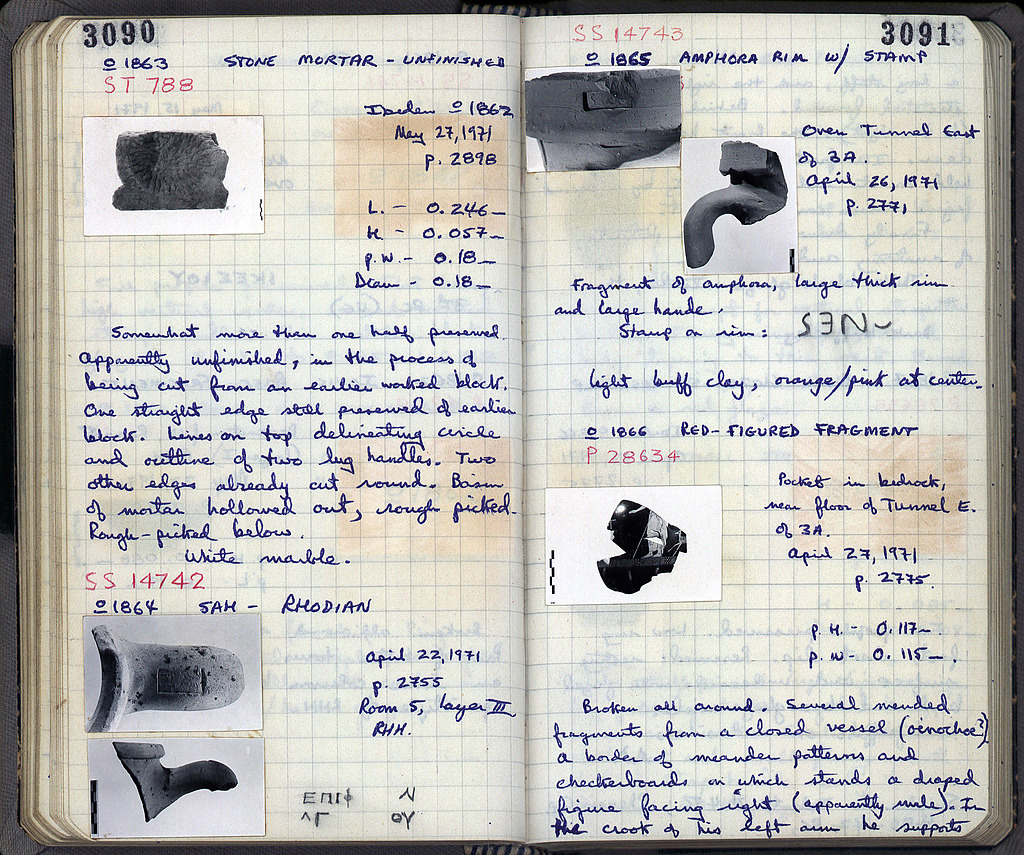 3090
O 1863 STONE MORTAR - UNFINISHED
ST 788
Ibidem O 1862
May 27, 1971
p. 2898
L. - 0.246
H. - 0.057
p.W. - 0.18
Diam - 0.18
Somewhat more than one half preserved.
Apparently unfinished, in the process of
being cut from an earlier worked block.
One straight edge still preserved of earlier
block. Lines on top delineating circle
and outline of two lug handles. Two
other edges already cut round. Basin
of mortar hollowed out, rough picked.
Rough-picked below.
White marble.
SS 14742
O 1864 SAH - RHODIAN
April 22, 1971
p. 2755
Room 5, layer III
RHH.
ΕΠΙΦ Ν
ΟΥ
3091
SS 14743
O 1865 AMPHORA RIM W/ STAMP
Oven Tunnel East
of 3A.
April 26, 1971
p. 2771
Fragment of amphora, large thick rim
and large handle.
Stamp on rim:
light buff clay, orange/pink at center.
O 1866 RED-FIGURED FRAGMENT
P 28634
Pocket in bedrock,
near floor of Tunnel E.
of 3A.
April 27, 1971
p. 2775
p. H. - 0.117
p. W - 0.115
Broken all around. Several mended
fragments from a closed vessel (oinochoe?)
a border of meander patterns and
checkerboards on which stands a draped
figure facing right (apparently male). In
the crook of his left arm he supports